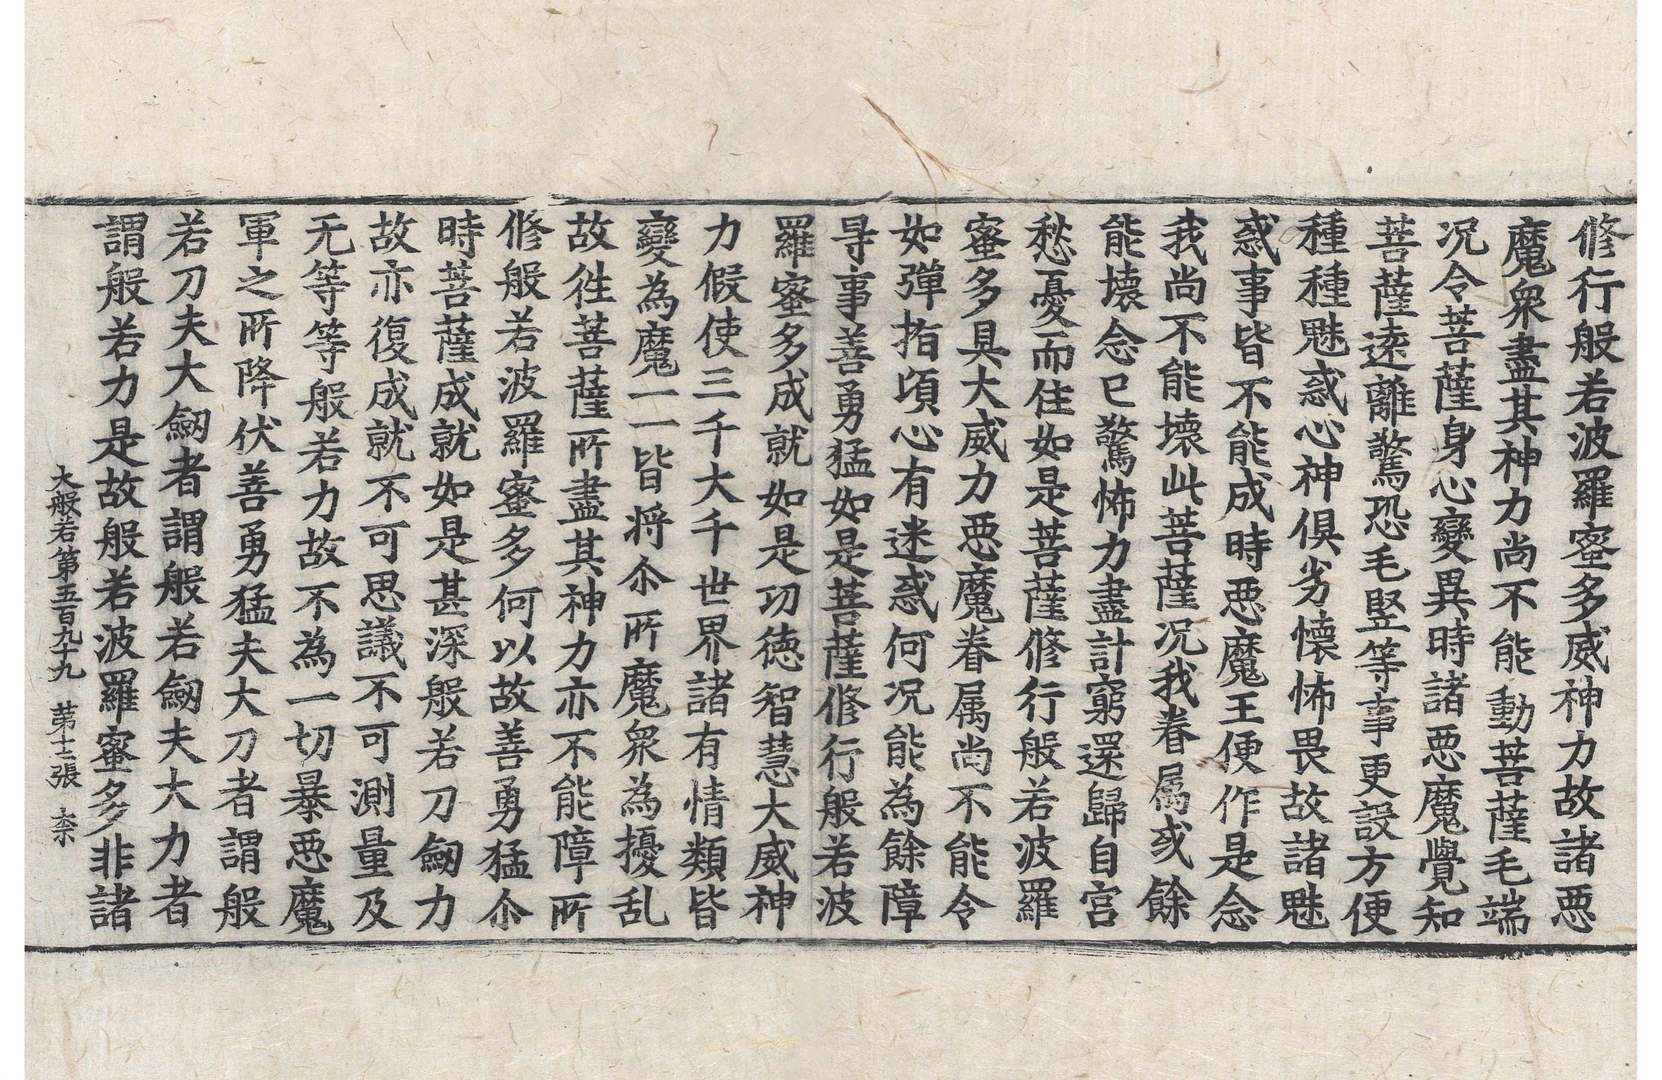 修行般若波羅蜜多威神力故諸惡
魔衆盡其神力尚不能動菩薩毛端
况令菩薩身心變異時諸惡魔覺知
菩薩遠離驚恐毛竪等事更設方便
種種魅惑心神俱劣懷怖畏故諸魅
惑事皆不能成時惡魔王便作是念
我尚不能壞此菩薩况我眷属或餘
能壞念已驚怖力盡計窮還歸自宫
愁憂而住如是菩薩修行般若波羅
蜜多具大威力惡魔眷属尚不能令
如彈指頃心有迷惑何况能為餘障
㝵事善勇猛如是菩薩修行般若波
羅蜜多成就如是功德智慧大威神
力假使三千大千世界諸有情類皆
變為魔一一皆將尒所魔衆為擾乱
故徃菩薩所盡其神力亦不能障所
修般若波羅蜜多何以故善勇猛尒
時菩薩成就如是甚深般若刀劒力
故亦復成就不可思議不可測量及
无等等般若力故不為一切暴惡魔
軍之所降伏善勇猛夫大刀者謂般
若刀夫大劒者謂般若劒夫大力者
謂般若力是故般若波羅蜜多非諸
大般若第五百九十九 第十三張 柰